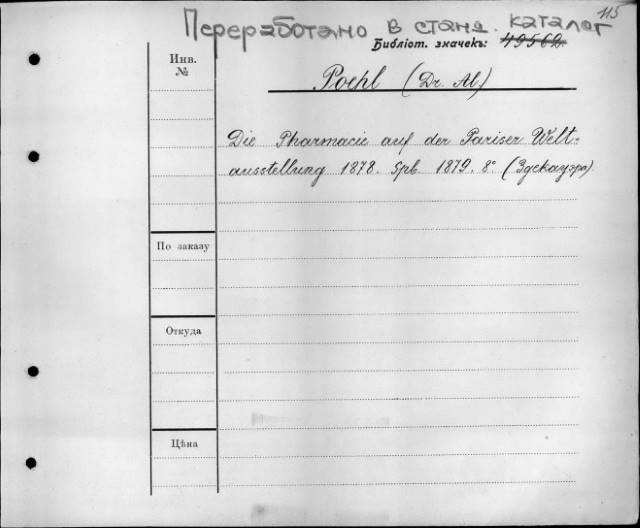 115
Переработано в станд. каталог
Библіот. значекъ: 49562
Инв.
№
Poehl (Dr. Al.)
Die Pharmacie auf der Pariser Welt-
ausstellung 1878. Spb. 1879. 8° (Здекауэра).
По заказу
Откуда
Цѣна